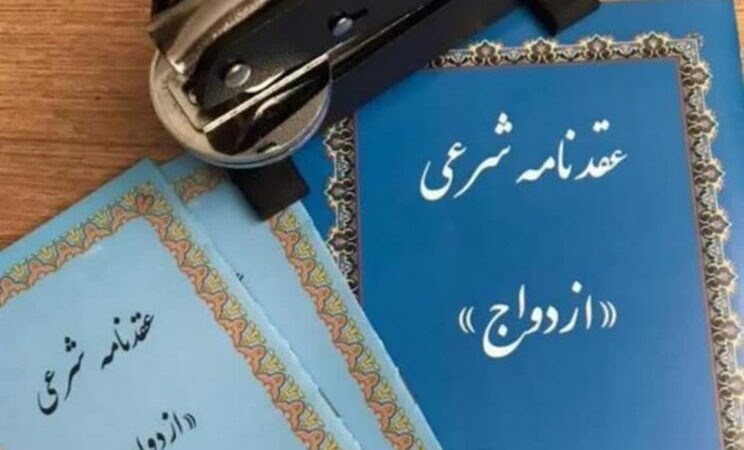 عقدنامه شرعی
«ازدواج»
عقدنامه شرعی